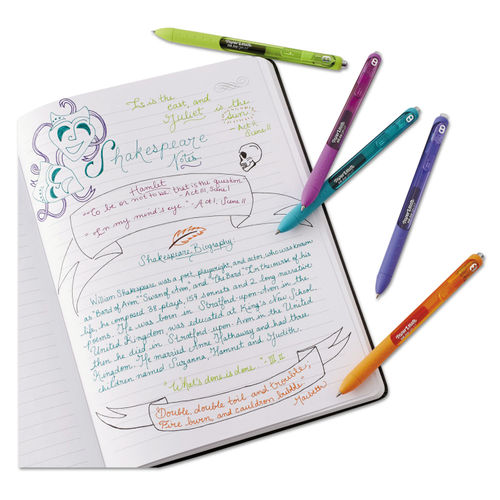 It is the
east, and
Juliet is the
Sun.
-Act II
Scene II
Shakespeare
Notes
Hamlet
"To be or not to be, that is the question."
-Act III, Scene I
"In my mind's eye." -Act I, Scene II
Shakespeare Biography:
William Shakespeare was a poet, playwright, and actor, who was known
as "Bard of Avon," "Swan of Avon," and "the Bard." In the course of his
life, he composed 38 plays, 154 sonnets and 2 long narrative
poems. He was born in Stratford-upon-Avon in the
United Kingdom, was educated at King's New School,
then he died in Stratford-upon-Avon in the United
Kingdom. He married Anne Hathaway and had three
children named Suzanna, Hamnet and Judith.
"What's done is done." -III.II
"Double, double toil and trouble,
Fire burn, and cauldron bubble"
Macbeth
Paper Mate
Paper Mate
Paper Mate
Paper Mate
Paper Mate